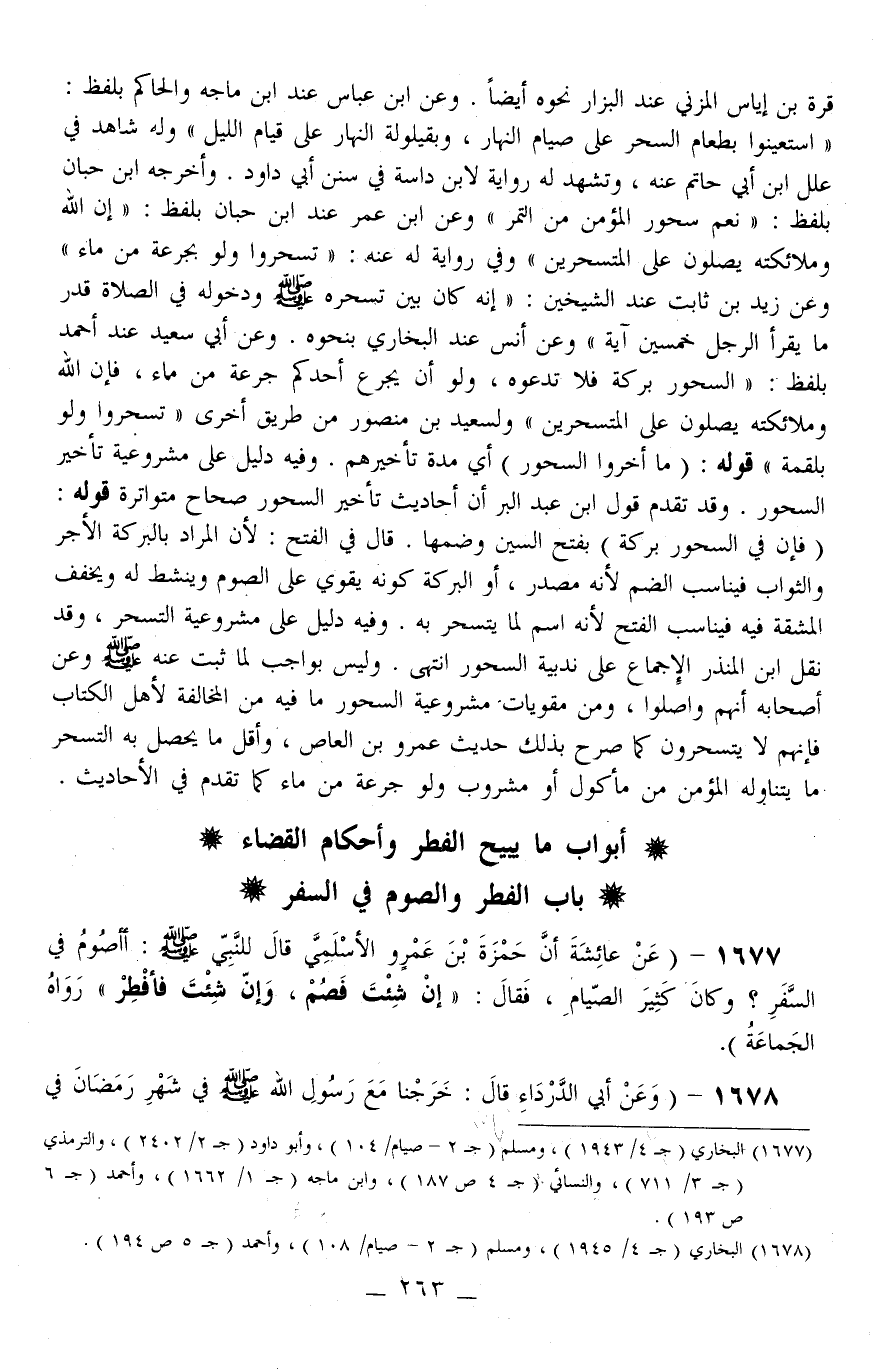 قرة بن إياس المزني عند البزار نحوه أيضاً . وعن ابن عباس عند ابن ماجه والحاكم بلفظ :
« استعينوا بطعام السحر على صيام النهار ، وبقيلولة النهار على قيام الليل » وله شاهد في
علل ابن أبي حاتم عنه ، وتشهد له رواية لابن داسة في سنن أبي داود . وأخرجه ابن حبان
بلفظ : « نعم سحور المؤمن من التمر » وعن ابن عمر عند ابن حبان بلفظ : « إن الله
وملائكته يصلون على المتسحرين » وفي رواية له عنه : « تسحروا ولو بجرعة من ماء »
وعن زيد بن ثابت عند الشيخين : « إنه كان بين تسحره ﷺ ودخوله في الصلاة قدر
ما يقرأ الرجل خمسين آية » وعن أنس عند البخاري بنحوه . وعن أبي سعيد عند أحمد
بلفظ : « السحور بركة فلا تدعوه ، ولو أن يجرع أحدكم جرعة من ماء ، فإن الله
وملائكته يصلون على المتسحرين » ولسعيد بن منصور من طريق أخرى « تسحروا ولو
بلقمة » قوله : ( ما أخروا السحور ) أي مدة تأخيرهم . وفيه دليل على مشروعية تأخير
السحور . وقد تقدم قول ابن عبد البر أن أحاديث تأخير السحور صحاح متواترة قوله :
( فإن في السحور بركة ) بفتح السين وضمها . قال في الفتح : لأن المراد بالبركة الأجر
والثواب فيناسب الضم لأنه مصدر ، أو البركة كونه يقوي على الصوم وينشط له ويخفف
المشقة فيه فيناسب الفتح لأنه اسم لما يتسحر به . وفيه دليل على مشروعية التسحر ، وقد
نقل ابن المنذر الإجماع على ندبية السحور انتهى . وليس بواجب لما ثبت عنه ﷺ وعن
أصحابه أنهم واصلوا ، ومن مقويات مشروعية السحور ما فيه من المخالفة لأهل الكتاب
فإنهم لا يتسحرون كما صرح بذلك حديث عمرو بن العاص ، وأقل ما يحصل به التسحر
ما يتناوله المؤمن من مأكول أو مشروب ولو جرعة من ماء كما تقدم في الأحاديث .
أبواب ما يبيح الفطر وأحكام القضاء
باب الفطر والصوم في السفر
١٦٧٧ - ( عَنْ عائِشَةَ أنَّ حَمْزَةَ بْنَ عَمْرٍو الأسْلَمِيَّ قالَ للنَّبِيّ ﷺ : أأصُومُ في
السَّفَرِ ؟ وكانَ كَثِيرَ الصّيامِ ، فَقالَ : « إنْ شِئْتَ فَصُمْ ، وَإنّ شِئْتَ فأفْطِرْ » رَوَاهُ
الجَماعَةُ ).
١٦٧٨ - ( وَعَنْ أبي الدَّرْدَاءِ قالَ : خَرَجْنا مَعَ رَسُولِ الله ﷺ في شَهْرِ رَمَضَانَ في
(١٦٧٧) البخاري ( جـ ٤/ ١٩٤٣ ) ، ومسلم ( جـ ٢ - صيام/ ١٠٤ ) ، وأبو داود ( جـ ٢/ ٢٤٠٢ ) ، والترمذي
( جـ ٣/ ٧١١ ) ، والنسائي ( جـ ٤ ص ١٨٧ ) ، وابن ماجه ( جـ ١/ ١٦٦٢ ) ، وأحمد ( جـ ٦
ص ١٩٣ ) .
(١٦٧٨) البخاري ( جـ ٤/ ١٩٤٥ ) ، ومسلم ( جـ ٢ - صيام/ ١٠٨ ) ، وأحمد ( جـ ٥ ص ١٩٤ ) .
_ ٢٦٣ _